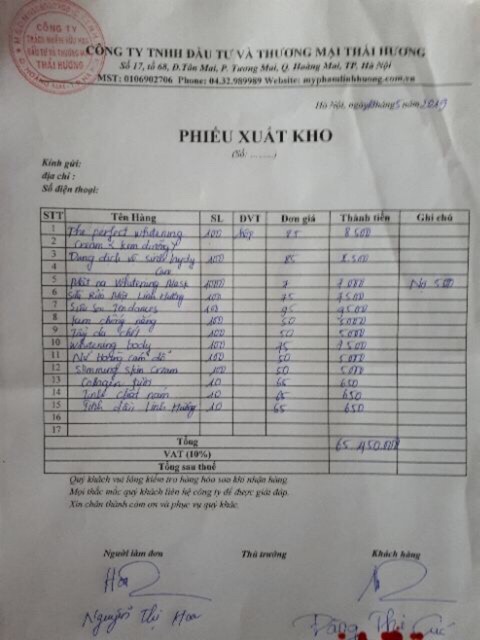 CÔNG TY
TRÁCH NHIỆM HỮU HẠN
ĐẦU TƯ VÀ THƯƠNG MẠI
THÁI HƯƠNG
CÔNG TY TNHH ĐẦU TƯ VÀ THƯƠNG MẠI THÁI HƯƠNG
Số 17, tổ 68, Đ.Tân Mai, P. Tương Mai, Q. Hoàng Mai, TP. Hà Nội
MST: 0106902706 Phone: 04.32.989989 Website: myphamlinhhuong.com.vn
Hà Nội, ngày tháng 5 năm 2019
PHIẾU XUẤT KHO
(Số: ........)
Kính gửi:
địa chỉ :
Số điện thoại:
STT Tên Hàng SL ĐVT Đơn giá Thành tiền Ghi chú
1 The perfect whitening 100 hộp 85 8.500
2 Cream
3 Dung dịch vệ sinh 100 85 8.500
4 Care
5 Mặt nạ Whitening Mask 1000 7 7.000 Nợ 500
6 Sữa Rửa Mặt Linh Hương 100 75 7500
7 100 95 9500
8 Kem chống nắng 100 50 5000
9 Tẩy da chết 100 50 5000
10 Whitening body 100 75 7500
11 100 50 5000
12 Slimming skin cream 100 50 5000
13 Collagen 10 65 650
14 10 65 650
15 Tinh dầu Linh Hương 10 65 650
16
17
Tổng 65 450.000
VAT (10%)
Tổng sau thuế
Quý khách vui lòng kiểm tra hàng hóa sau khi nhận hàng.
Mọi thắc mắc quý khách liên hệ công ty để được giải đáp.
Xin chân thành cảm ơn và phục vụ quý khách.
Người làm đơn Thủ trưởng Khách hàng
Hoa
Nguyễn Thị Hoa Đặng Thị Cúc